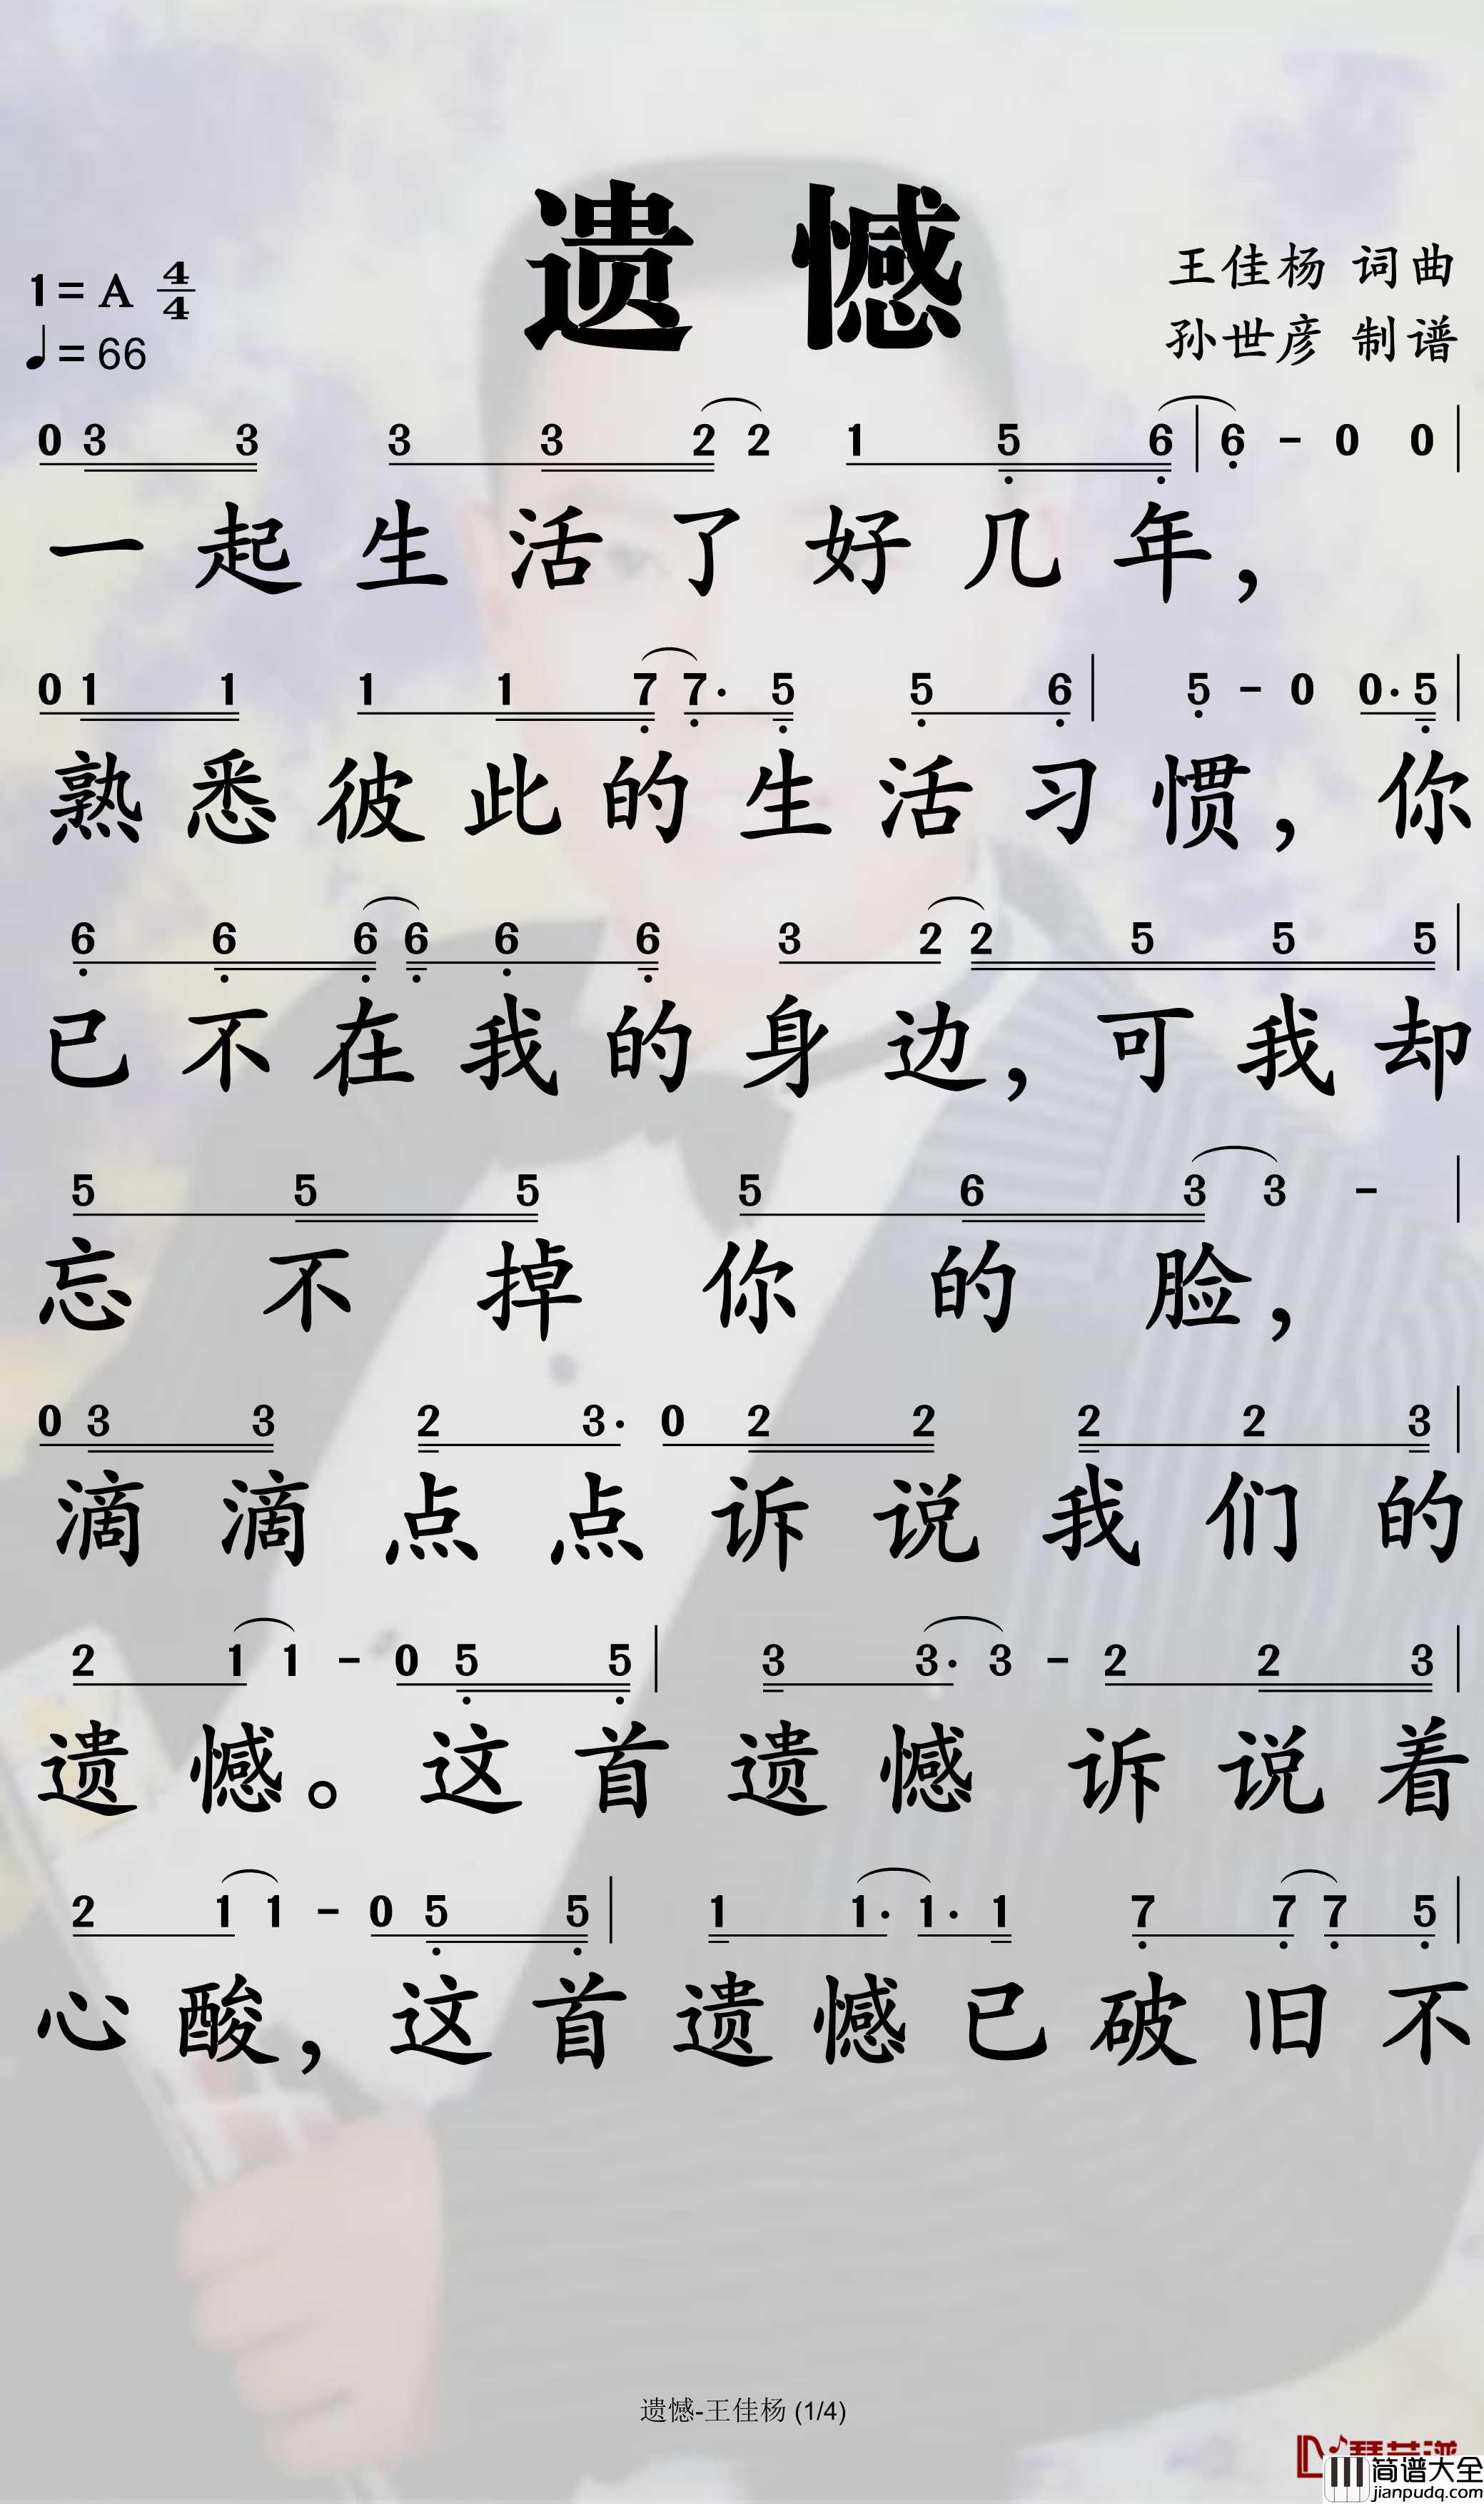 遗憾
1=A 4/4
♩=66
王佳杨 词曲
孙世彦 制谱
0 3 3 3 3 2 2 1 5 6 | 6 - 0 0 |
一起生活了好几年，
0 1 1 1 1 7 7· 5 5 6 | 5 - 0 0· 5 |
熟悉彼此的生活习惯，你
6 6 6 6 6 6 3 2 2 5 5 5 |
已不在我的身边，可我却
5 5 5 5 6 3 3 - |
忘不掉你的脸，
0 3 3 2 3· 0 2 2 2 2 3 |
滴滴点点诉说我们的
2 1 1 - 0 5 5 | 3 3· 3 - 2 2 3 |
遗憾。这首遗憾 诉说着
2 1 1 - 0 5 5 | 1 1· 1· 1 7 7 7 5 |
心酸，这首遗憾已破旧不
遗憾-王佳杨 (1/4)
简谱大全
jianpudq.com